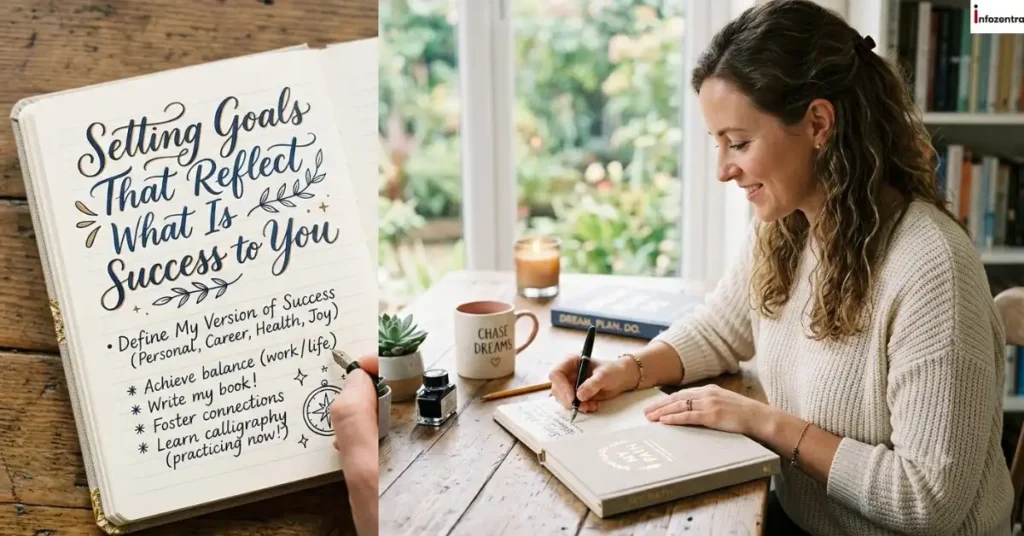 Setting Goals
That Reflect
What Is
Success to You
• Define My Version of Success
(Personal, Career, Health, Joy)
* Achieve balance (work/life)
* Write my book!
* Foster connections
* Learn calligraphy
(practicing now!)
infozentra
CHASE
DREAMS
DREAM. PLAN. DO.